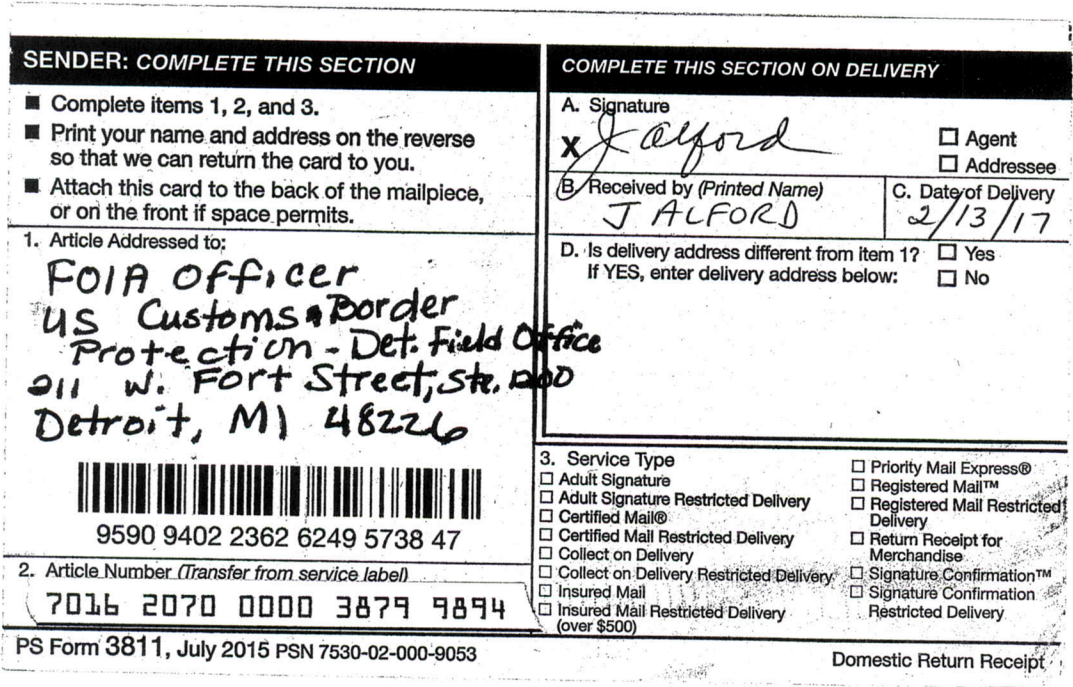 SENDER: COMPLETE THIS SECTION
■ Complete items 1, 2, and 3.
■ Print your name and address on the reverse
so that we can return the card to you.
■ Attach this card to the back of the mailpiece,
or on the front if space permits.
1. Article Addressed to:
FOIA Officer
US Customs & Border
Protection - Det. Field Office
211 W. Fort Street, Ste. 1200
Detroit, MI 48226
9590 9402 2362 6249 5738 47
2. Article Number (Transfer from service label)
7016 2070 0000 3879 9894
COMPLETE THIS SECTION ON DELIVERY
A. Signature
X J Alford
☐ Agent
☐ Addressee
B. Received by (Printed Name)
J ALFORD
C. Date of Delivery
2/13/17
D. Is delivery address different from item 1? ☐ Yes
If YES, enter delivery address below: ☐ No
3. Service Type
☐ Adult Signature
☐ Adult Signature Restricted Delivery
☐ Certified Mail®
☐ Certified Mail Restricted Delivery
☐ Collect on Delivery
☐ Collect on Delivery Restricted Delivery
☐ Insured Mail
☐ Insured Mail Restricted Delivery
(over $500)
☐ Priority Mail Express®
☐ Registered Mail™
☐ Registered Mail Restricted
Delivery
☐ Return Receipt for
Merchandise
☐ Signature Confirmation™
☐ Signature Confirmation
Restricted Delivery
PS Form 3811, July 2015 PSN 7530-02-000-9053
Domestic Return Receipt